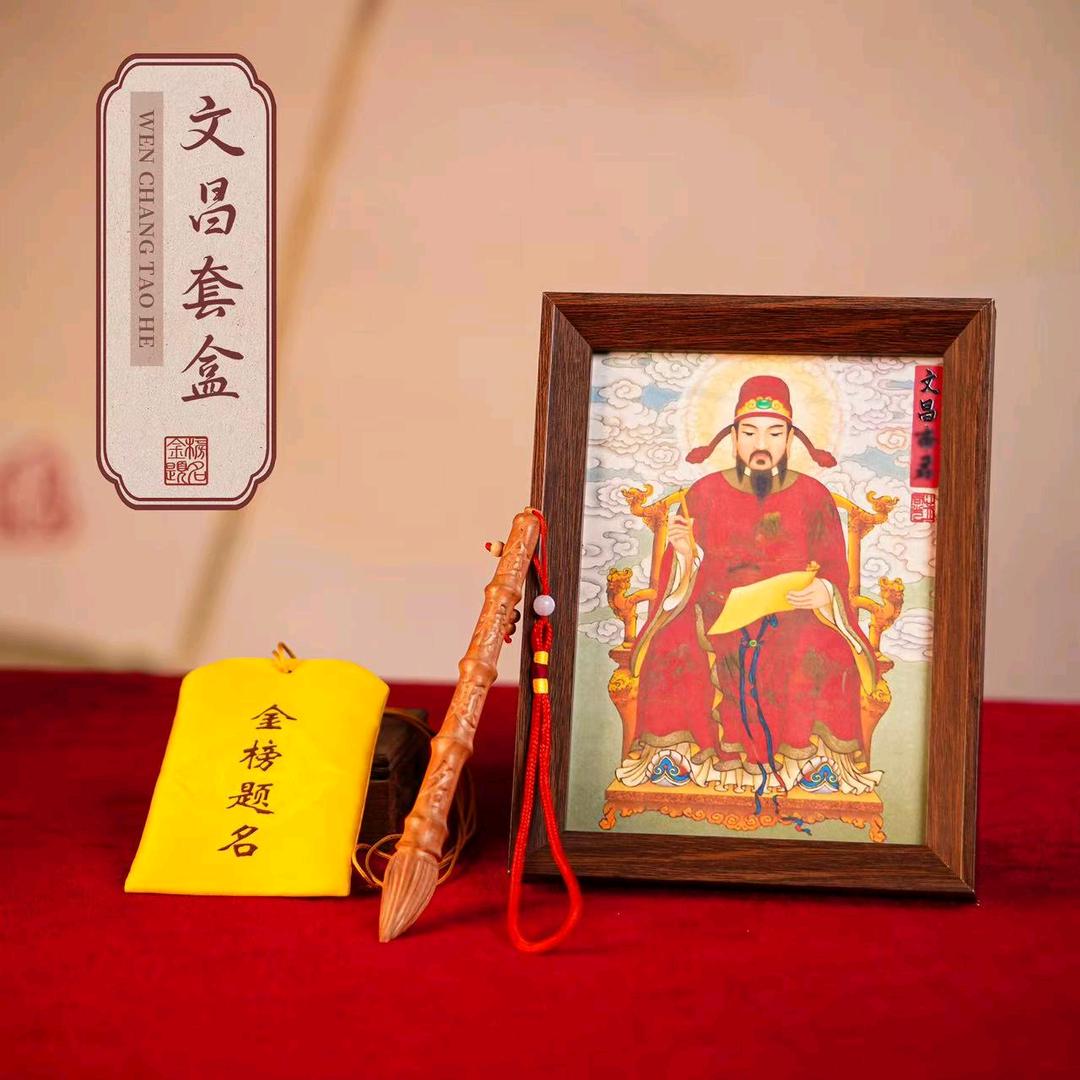 文昌套盒
WEN CHANG TAO HE
金榜題名
金榜题名
文昌